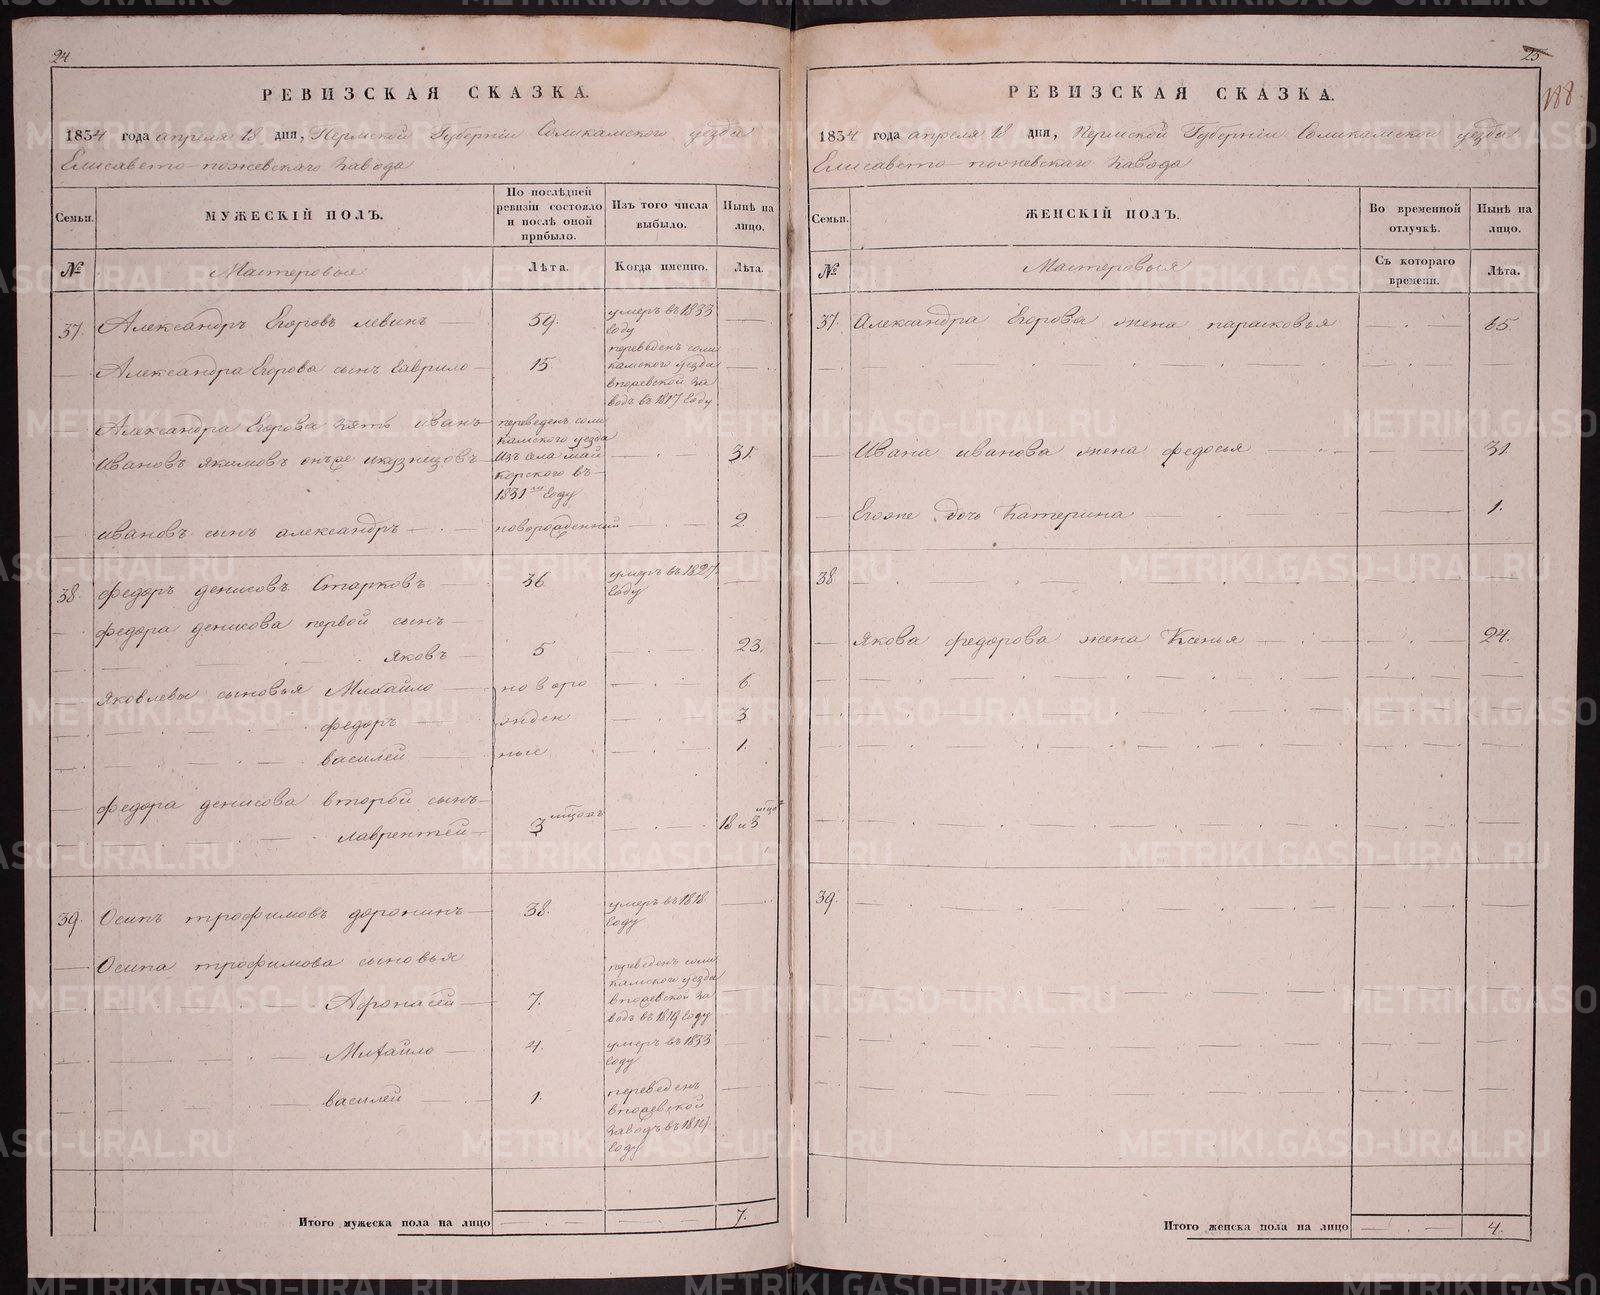 24
РЕВИЗСКАЯ СКАЗКА.
1834 года апреля 18 дня, Пермской Губернiи Соликамского уезда
Елисавето-пожевского завода
Семьи.
МУЖЕСКIЙ ПОЛЪ.
По послѣдней ревизiи состояло и послѣ оной прибыло.
Изъ того числа выбыло.
Нынѣ на лицо.
№
Мастеровыя
Лѣта.
Когда именно.
Лѣта.
37. Александръ Егоровъ левинъ 59. умеръ въ 1833 году
Александра Егорова сынъ Гаврило 15 переведенъ соликамского уезда в завод въ 1817 году
Александра Егорова зять иванъ переведенъ соликамского уезда
ивановъ якимовъ кузнецовъ изъ села майкорского въ 1831 году 31.
ивановъ сынъ александръ новорожденный 2.
38. федоръ денисовъ Старковъ 36 умеръ въ 1827 году
федора денисова первой сынъ
яковъ 5 23.
яковлевы сыновья Михайло новоро 6.
федоръ жден 3
василей ные 1.
федора денисова второй сынъ
лаврентей 3 18 и 3
39. Осипъ трофимовъ доронинъ 38. умеръ въ 1818 году
Осипа трофимова сыновья
Афонасей 7. переведенъ соликамского уезда в завод въ 1819 году
Михайло 4. умеръ въ 1833 году
василей 1. переведенъ в заводъ въ 1819 году
Итого мужеска пола на лицо 7.
25
188
РЕВИЗСКАЯ СКАЗКА.
1834 года апреля 18 дня, Пермской Губернiи Соликамской уезда
Елисавето-пожевского завода
Семьи.
ЖЕНСКIЙ ПОЛЪ.
Во временной отлучкѣ.
Нынѣ на лицо.
№
Мастеровыя
Съ котораго времени.
Лѣта.
37. Александра Егорова жена парасковья 65
Ивана иванова жена федосья 31
Егоже дочь Катерина 1.
38.
Якова федорова жена Ксенья 24.
39.
Итого женска пола на лицо 4.
METRIKI.GASO-URAL.RU